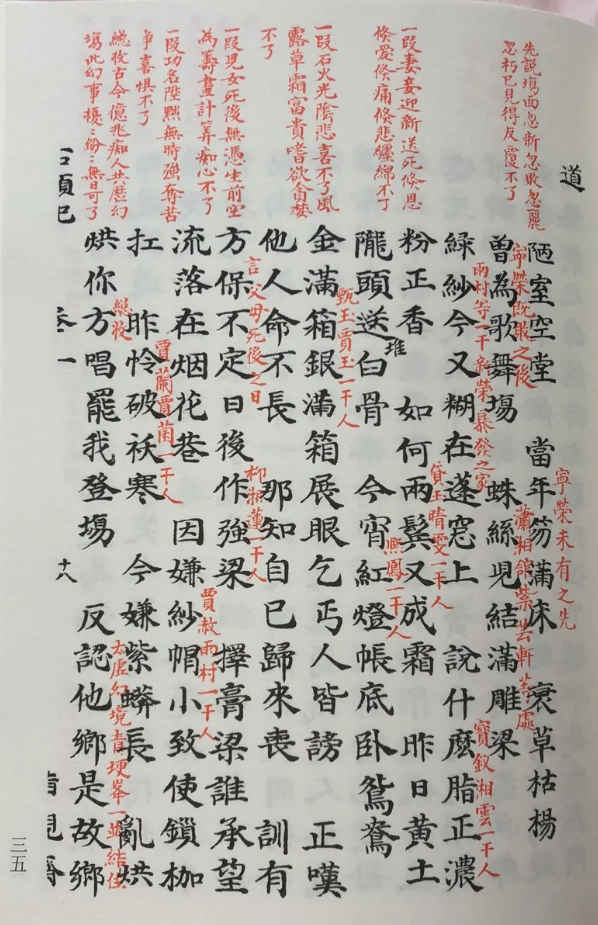 道
先說塲面忽新忽敗忽麗
忽朽已見得反覆不了
一段妻妾迎新送死倐恩
倐愛倐痛倐悲纒綿不了
一段石火光陰悲喜不了風
露草霜富貴嗜欲貪婪
不了
一段兒女死後無憑生前空
為籌畫計筭痴心不了
一段功名陞黜無時强奪苦
争喜惧不了
總收古今億兆痴人共歷幻
塲此幻事擾ミ紛ミ無日可了
陋室空堂 當年笏滿床 衰草枯楊
寧榮未有之先
寧榮既敗之後
曾為歌舞塲 蛛絲兒結滿雕梁
瀟湘館紫芸軒等處
雨村等一干新榮暴發之家
綠紗今又糊在蓬窓上 說什麽脂正濃
寶釵湘雲一干人
粉正香 如何兩鬓又成霜 昨日黃土
貸玉晴雯一干人
隴頭送白骨 今宵紅燈帳底卧鴛鴦
堆
熙鳳一干人
金滿箱銀滿箱展眼乞丐人皆謗 正嘆
甄玉賈玉一干人
他人命不長 那知自己歸來喪 訓有
言父母死後之日
方保不定日後作強梁 擇膏梁誰承望
柳湘蓮一干人
流落在烟花巷 因嫌紗帽小致使鎖枷
賈赦雨村一干人
扛 昨怜破袄寒 今嫌紫蟒長 亂烘
賈蘭賈菌一干人
烘你方唱罷我登塲 反認他鄉是故鄉
總收
太虛幻境青埂峯一並結住
石頭記 卷一 十八
三五